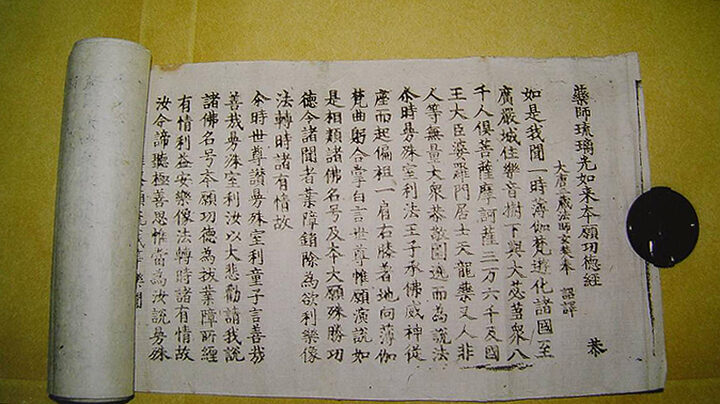 藥師琉璃光如来本願功德經 恭
大唐三藏法師玄奘奉 詔譯
如是我聞一時薄伽梵遊化諸國至
廣嚴城住樂音樹下與大苾蒭衆八
千人俱菩薩摩訶薩三万六千及國
王大臣婆羅門居士天龍藥叉人非
人等無量大衆恭敬圍遶而為說法
尒時曼殊室利法王子承佛威神從
座而起偏袒一肩右膝著地向薄伽
梵曲躬合掌白言世尊惟願演說如
是相類諸佛名号及本大願殊勝功
德令諸聞者業障銷除為欲利樂像
法轉時諸有情故
尒時世尊讃曼殊室利童子言善哉
善哉曼殊室利汝以大悲勸請我說
諸佛名号本願功德為拔業障所纏
有情利益安樂像法轉時諸有情故
汝今諦聽極善思惟當為汝說曼殊